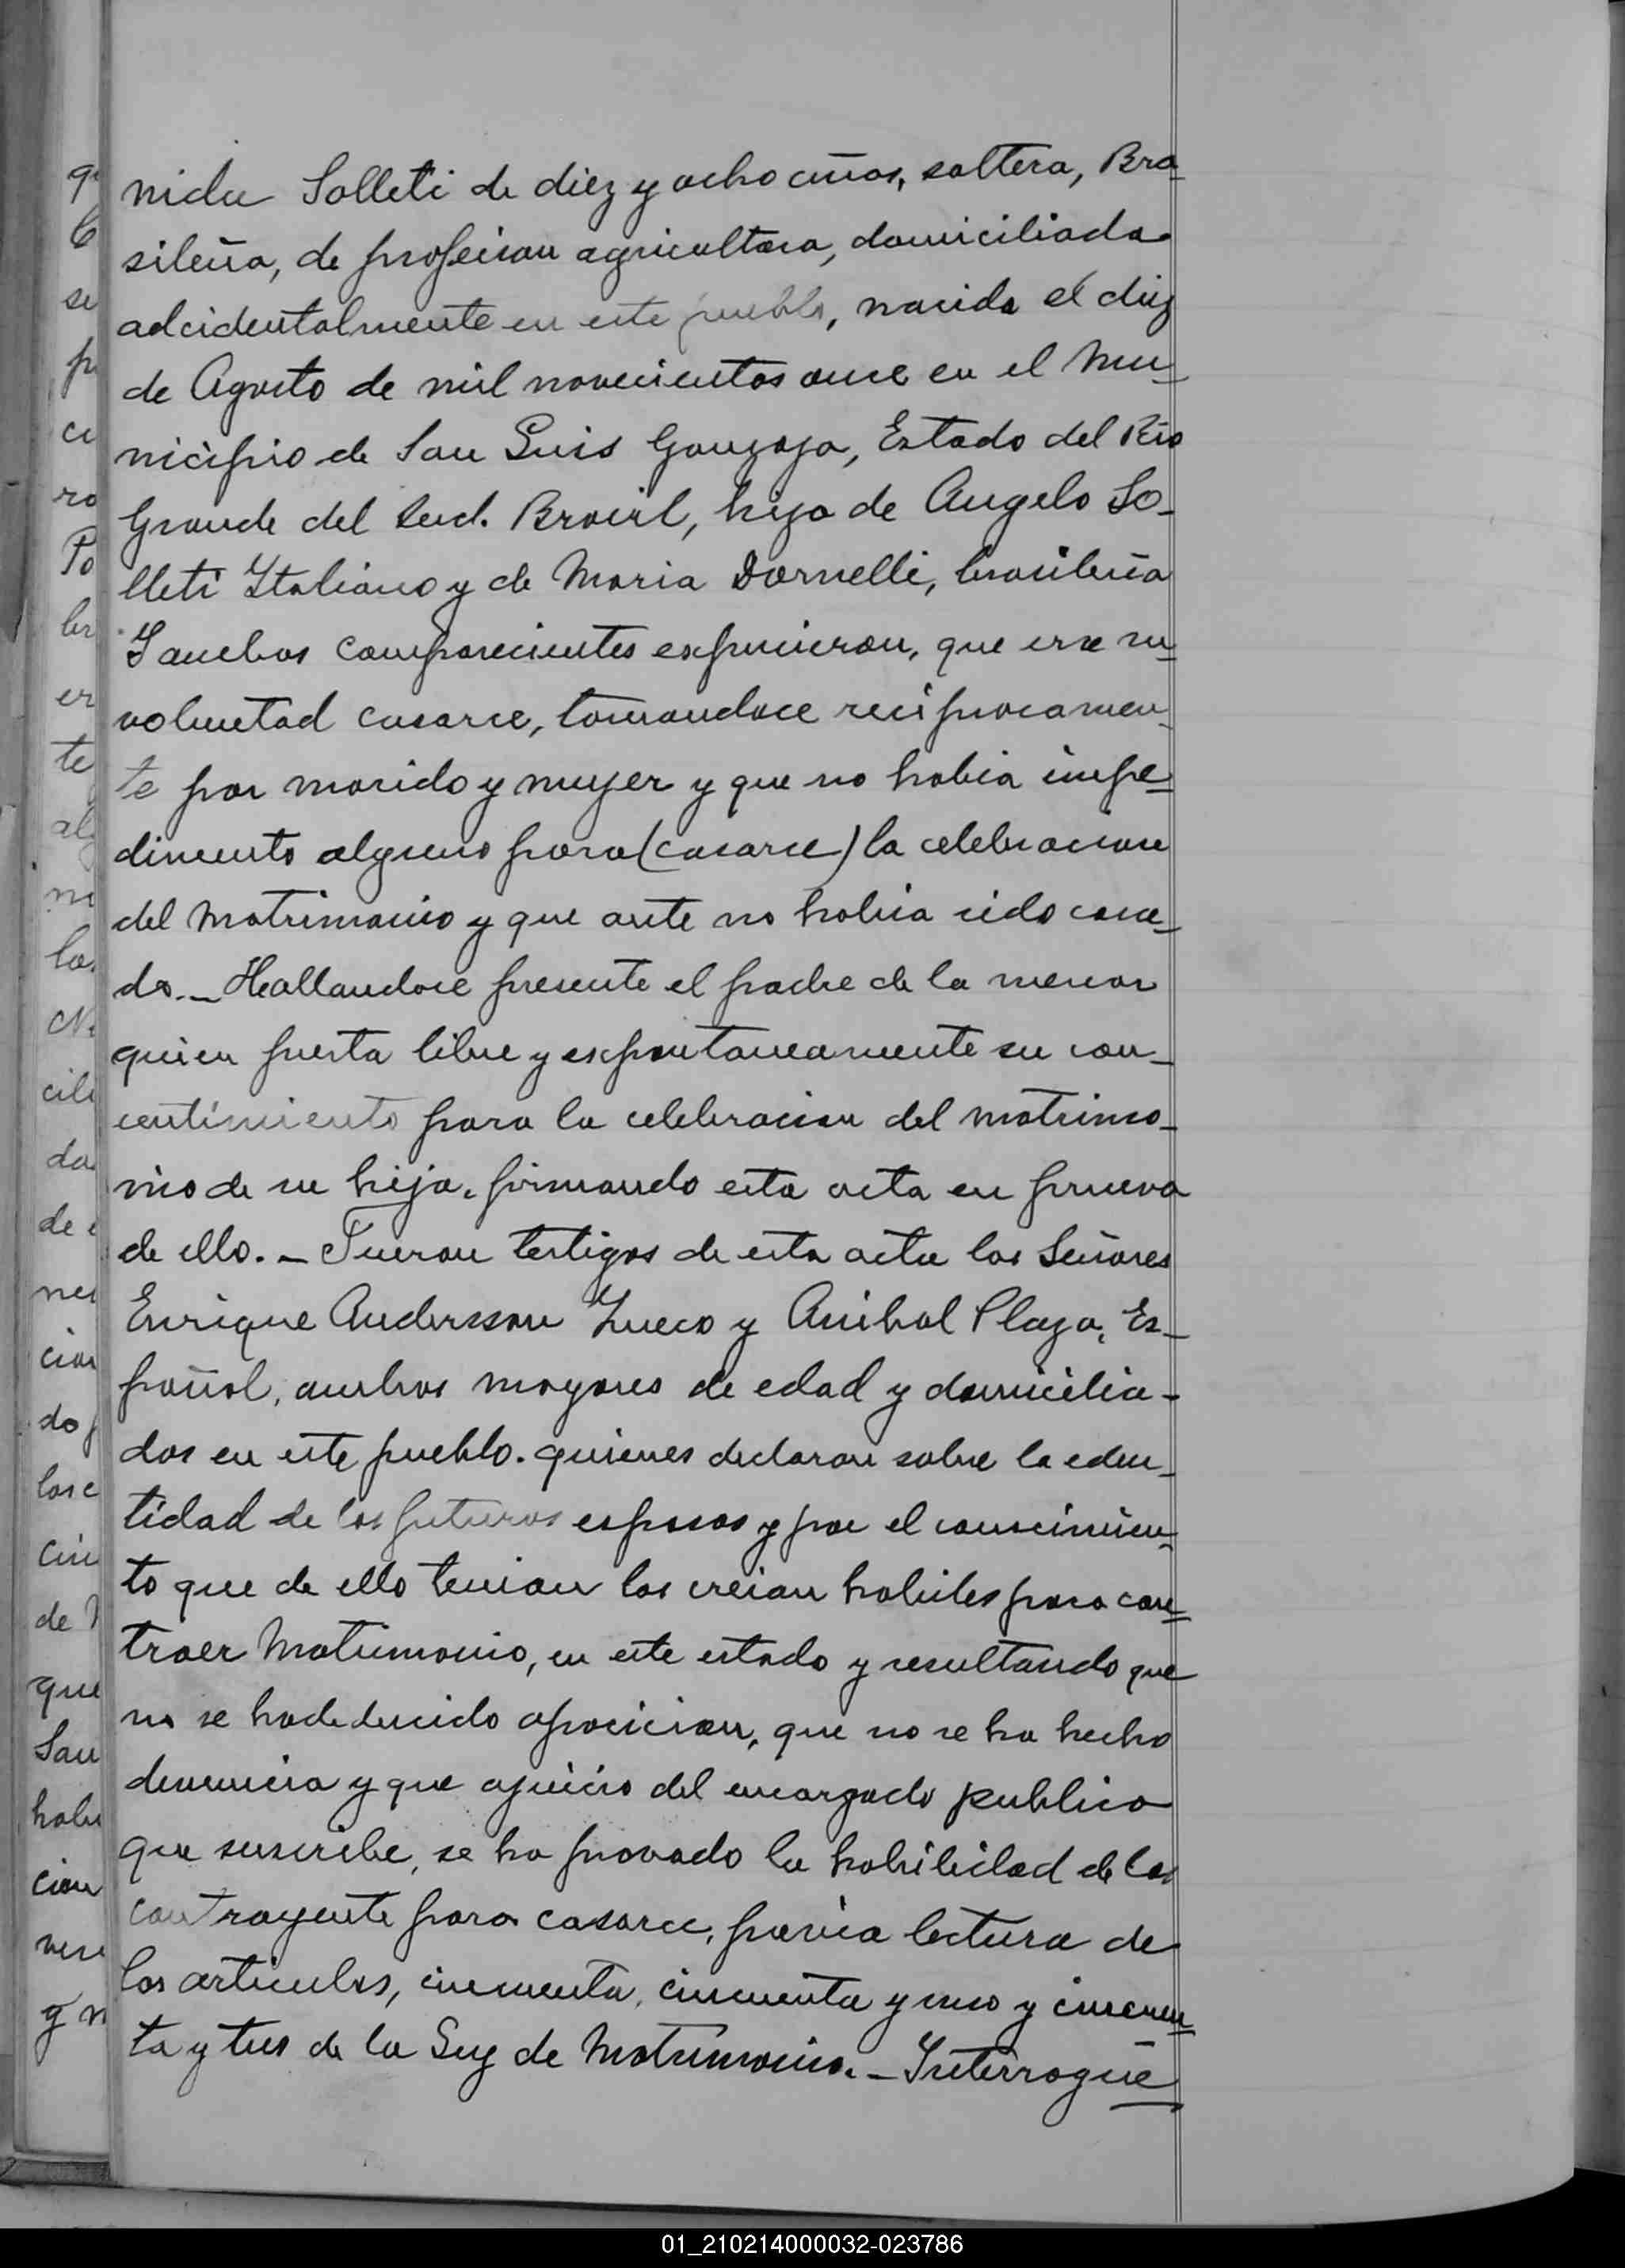 nida Solleti de diez y ocho años, soltera, Bra_
sileña, de profecion agricultora, domiciliada
adcidentalmente en este pueblo, nacida el diez
de Agosto de mil novecientos once en el Mu_
nicipio de San Luis Gonzaga, Estado del Rio
Grande del Sud. Bracil, hija de Angelo So_
lleti Ytaliano y de Maria Dornelli, brasileña
Y ambos comparecientes expucieron, que era su_
voluntad casarce, tomandoce reciprocamen_
te por marido y mujer y que no habia impe_
dimento alguno para (casarce) la celebracion
del Matrimonio y que ante no habia sido casa_
do._ Heallandoce presente el padre de la menor
quien presta libre y expontaneamente su con_
centimiento para la celebracion del matrimo_
nio de su hija, firmando esta acta en prueva
de ello._ Fueron testigos de esta acta los Señores
Enrique Andersson Zueco y Anibal Plaza, Es_
pañol, ambos mayores de edad y domicilia-
dos en este pueblo. quienes declaron sobre la eden_
tidad de los futuros esposos y por el conocimien_
to que de ello tenian los creian habiles para con_
traer Matrimonio, en este estado y resultando que
no se hadeducido oposicion, que no se ha hecho
denuncia y que ajuicio del encargado publico
que suscribe, se ha provado la habilidad de los
contrayente para casarce, previa lectura de
los articulos, cincuenta, cincuenta y uno y cincuen_
ta y tres de la Ley de Matrimonio._ Ynterrogué
01_210214000032-023786